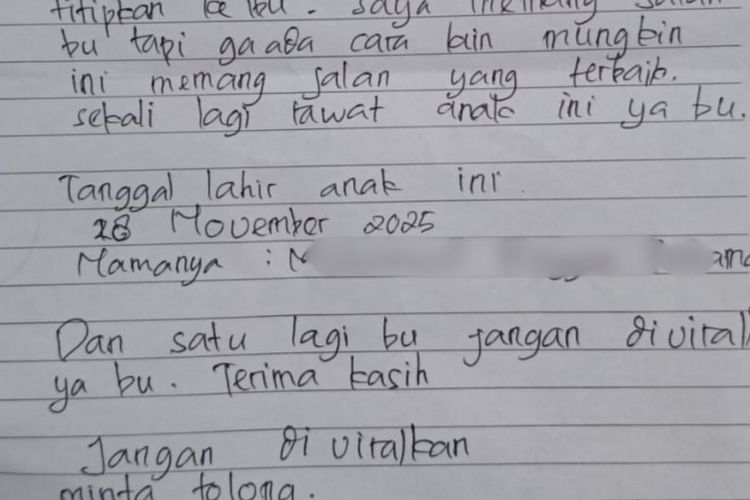 titipkan ke ibu. saya memang salah
bu tapi ga ada cara lain mungkin
ini memang jalan yang terbaik.
sekali lagi rawat anak ini ya bu.
Tanggal lahir anak ini
28 November 2025
Mamanya :
Dan satu lagi bu jangan diviral
ya bu. Terima kasih
Jangan di viralkan
minta tolong.